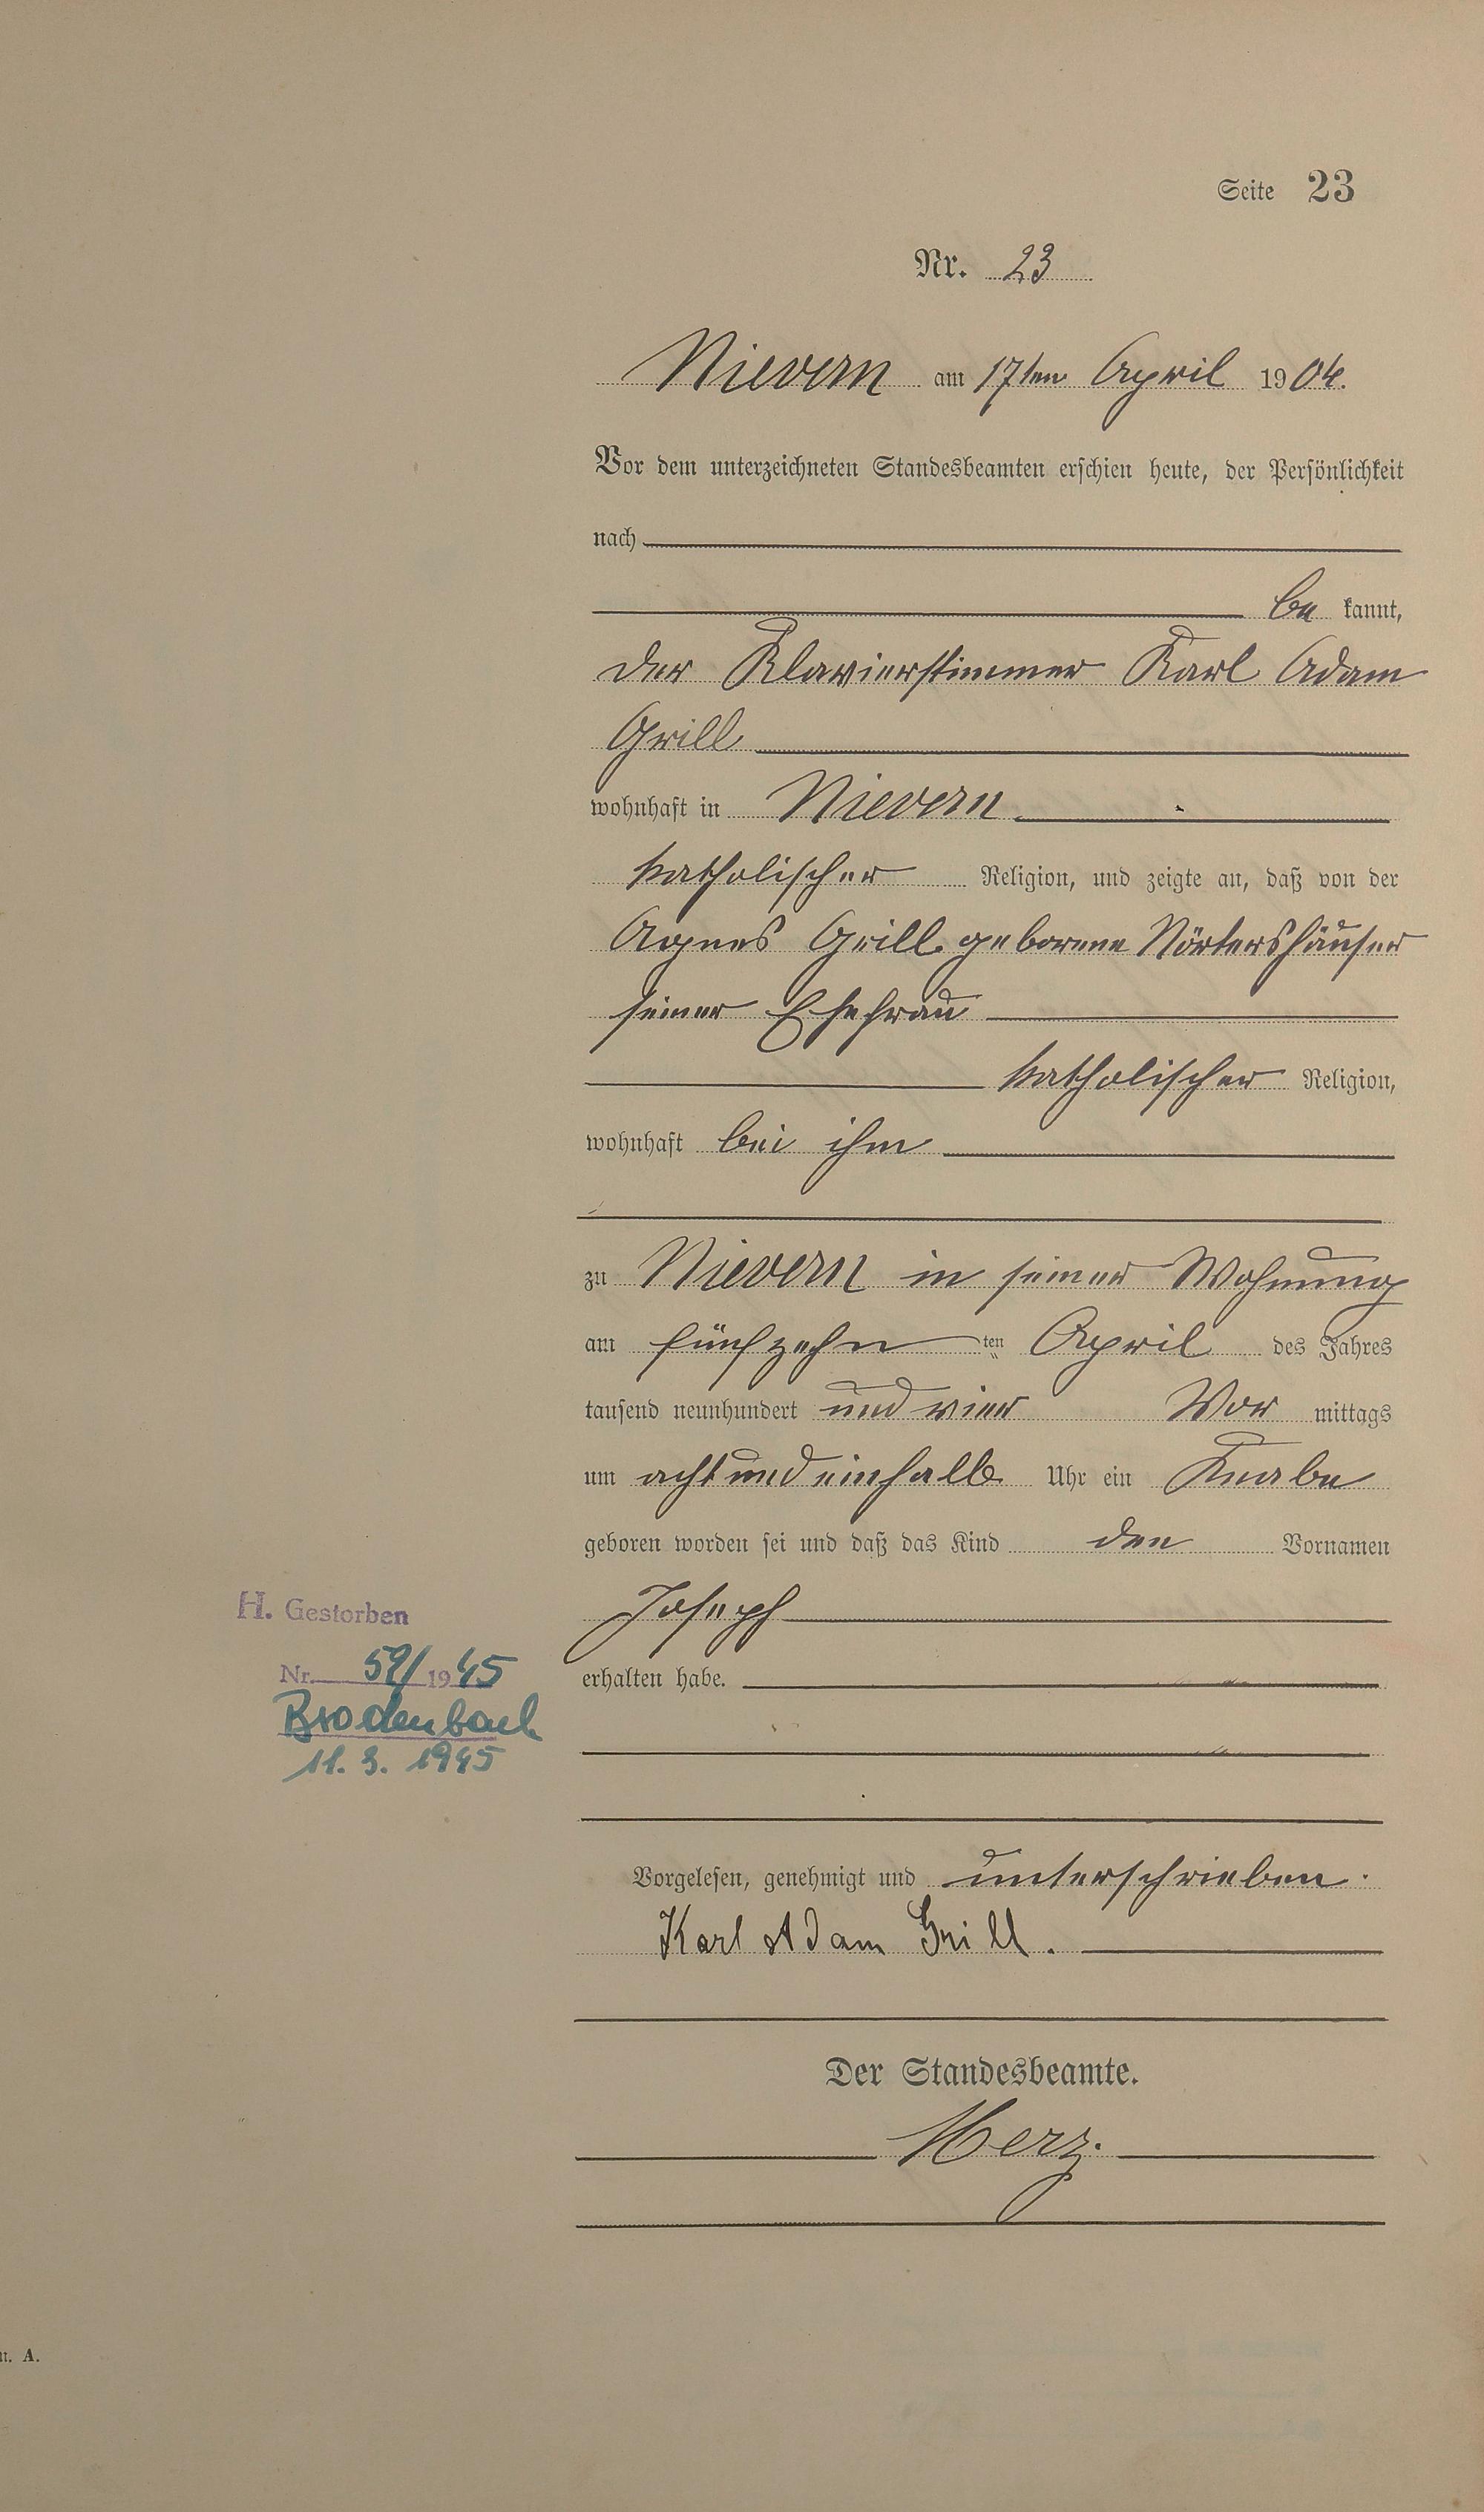 Seite 23
Nr. 23
Nievern am 17ten April 1904.
Vor dem unterzeichneten Standesbeamten erschien heute, der Persönlichkeit
nach
be kannt,
der Klavierstimmer Karl Adam
Grill
wohnhaft in Nievern
katholischer Religion, und zeigte an, daß von der
Agnes Grill geborene Nörtershäuser
seiner Ehefrau
katholischer Religion,
wohnhaft bei ihm
zu Nievern in seiner Wohnung
am fünfzehn ten April des Jahres
tausend neunhundert und vier Vor mittags
um acht und einhalb Uhr ein Knabe
geboren worden sei und daß das Kind den Vornamen
Joseph
erhalten habe.
H. Gestorben
Nr. 59/1945
Brodenbach
11. 3. 1945
Vorgelesen, genehmigt und unterschrieben.
Karl Adam Grill.
Der Standesbeamte.
Merz.
A.